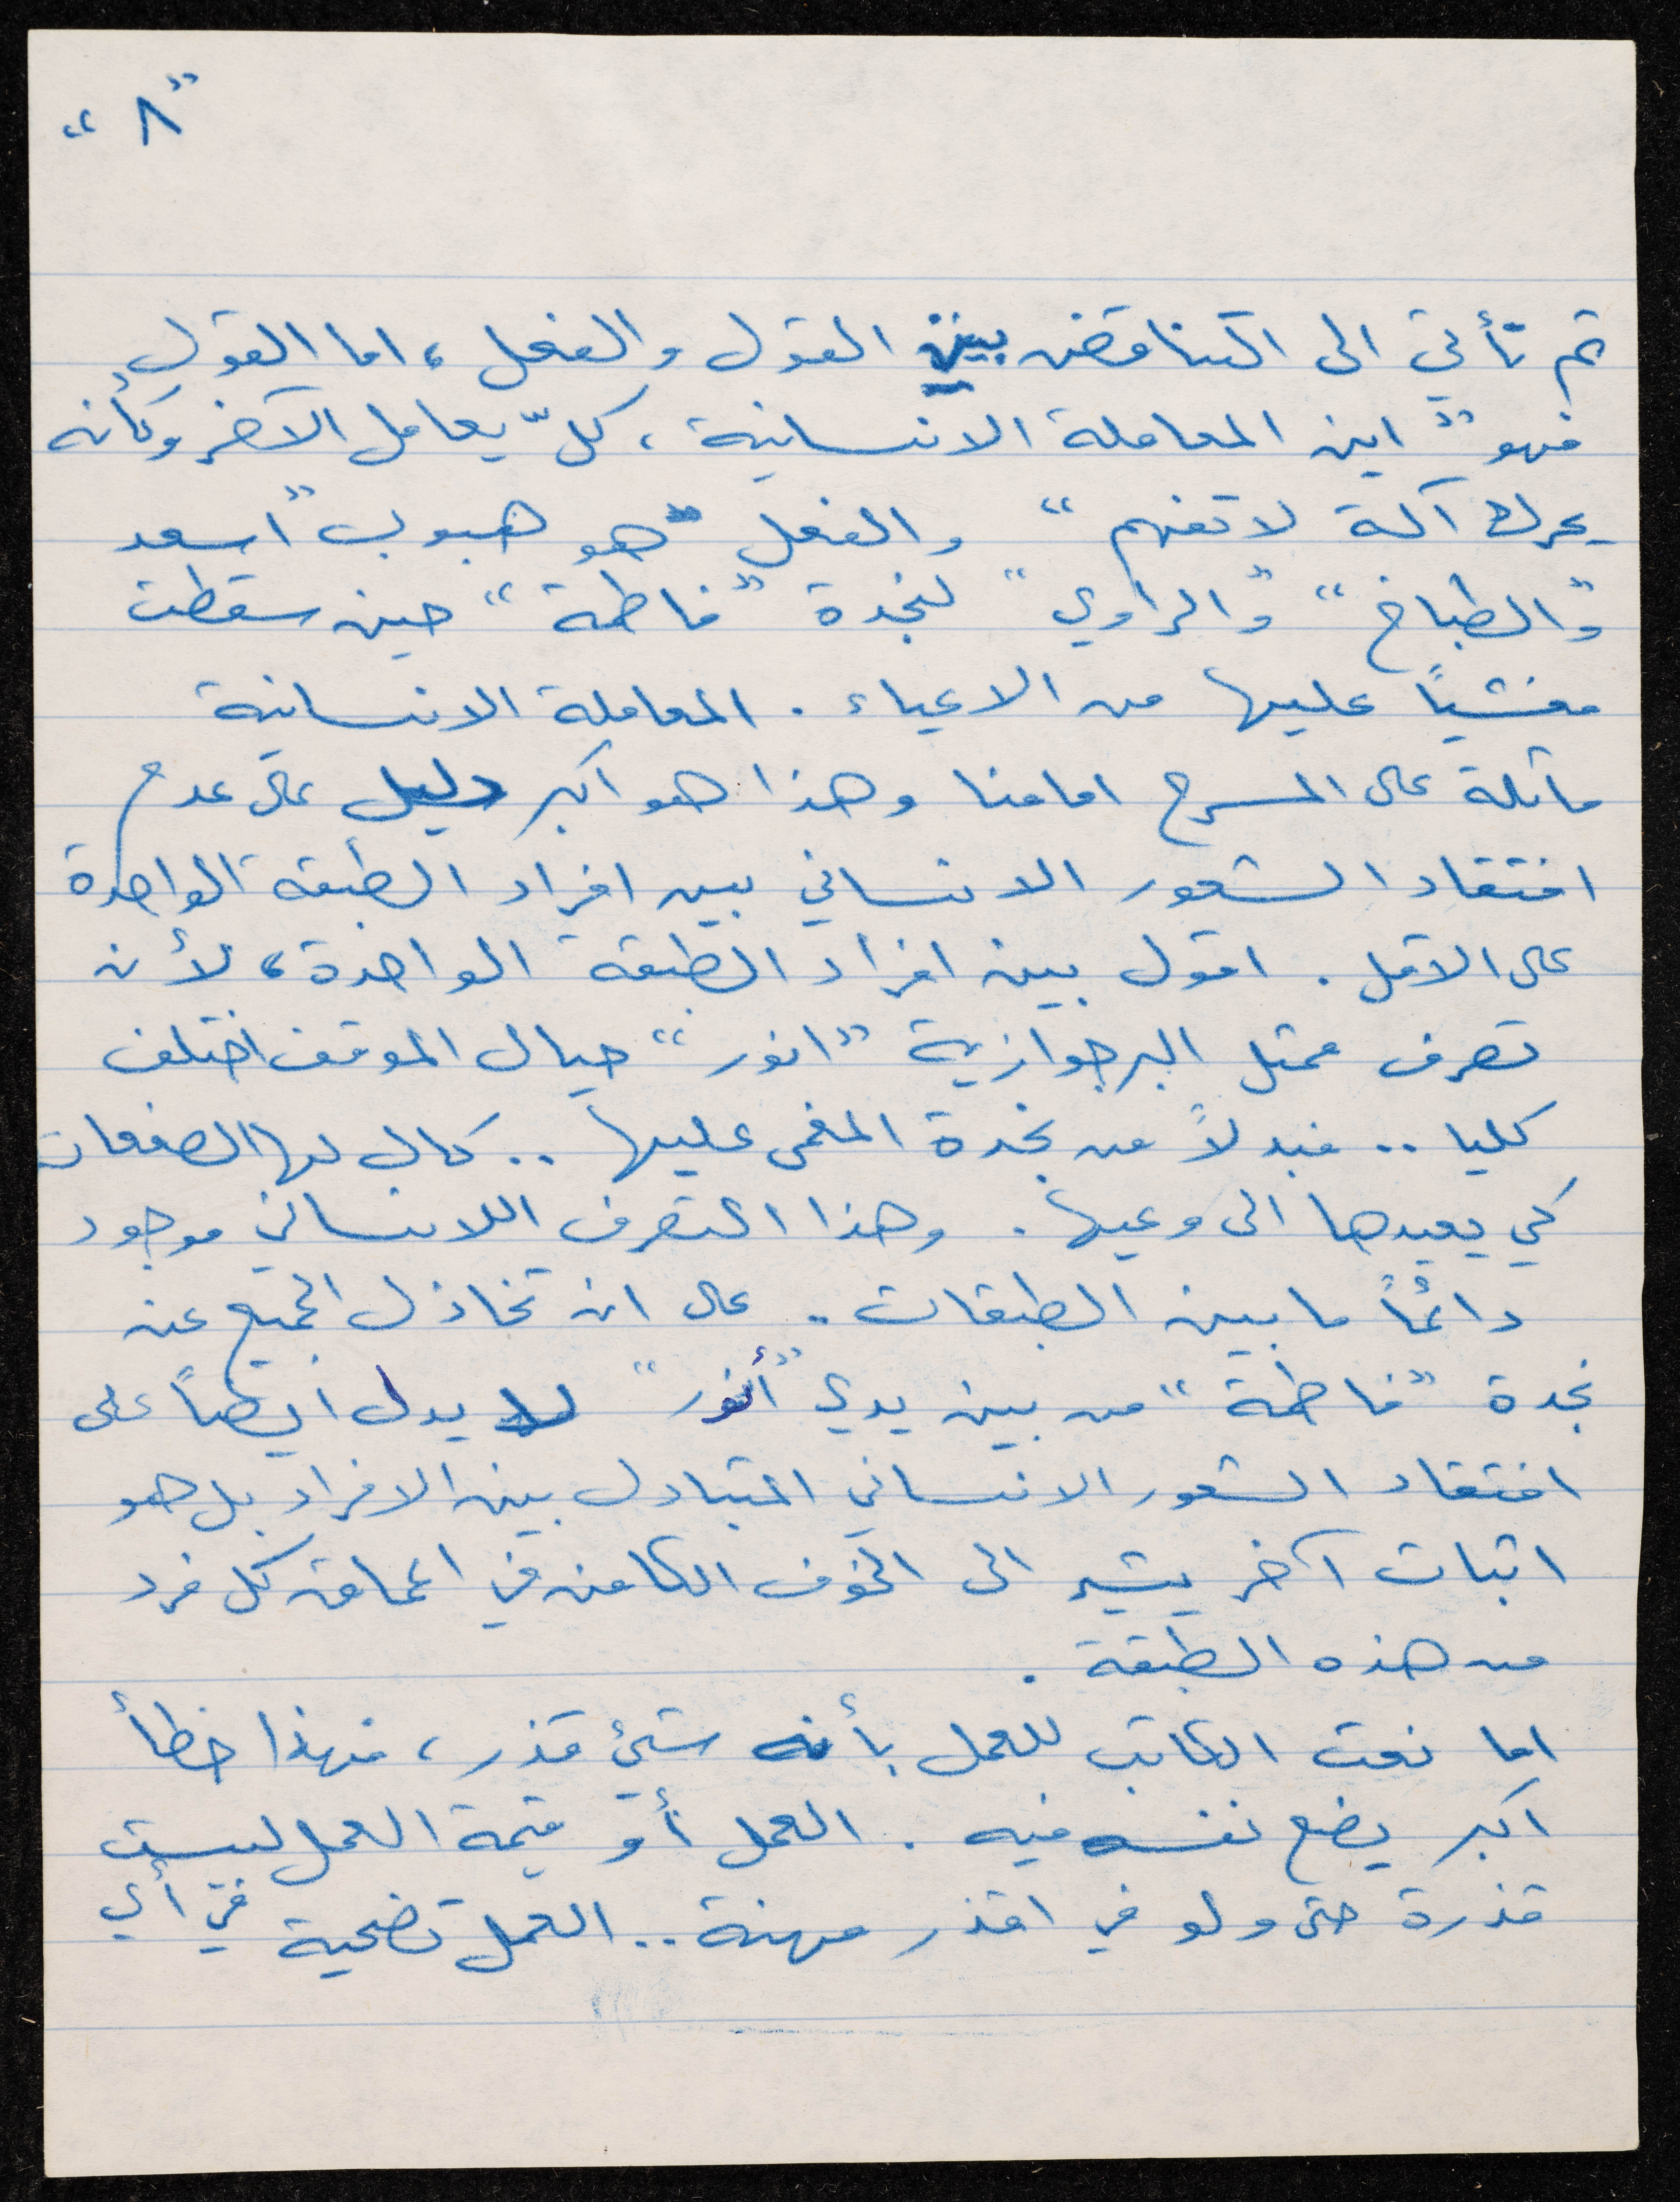 "٨"
ثم تأتي الى التناقض بين القول والفعل، اما القول
فهو "اين المعاملة الانسانية، كلّ يعامل الآخر وكأنه
يحرك آلة لا تفهم" والفعل هو هبوب "اسعد
و"الطباخ" و"الراوي" لنجدة "فاطمة" حين سقطت
مغشياً عليها من الاعياء. المعاملة الانسانية
ماثلة على المسرح امامنا وهذا هو اكبر دليل على عدم
افتقاد الشعور الانساني بين افراد الطبقة الواحدة
على الاقل. اقول بين افراد الطبقة الواحدة، لأن
تصرف ممثل البرجوازية "انور" حيال الموقف اختلف
كليا .. فبدلاً من نجدة المغمى عليها .. كال لها الصفعات
كي يعيدها الى وعيها. وهذا التصرف اللانساني موجود
دائماً ما بين الطبقات.. على ان تخاذل الجميع عن
نجدة "فاطمة" من بين يدي "أنور" لا يدل أيضاً على
افتقاد الشعور الانساني المتبادل بين الافراد بل هو
اثبات آخر يشير الى الخوف الكامن في اعماق كل فرد
من هذه الطبقة.
اما نعت الكاتب للعمل بأنه شيئ قذر، فهذا خطأ
اكبر يضع نفسه فيه. العمل أو قيمة العمل ليست
قذرة حتى ولو في اقذر مهنة.. العمل تضحية في أي